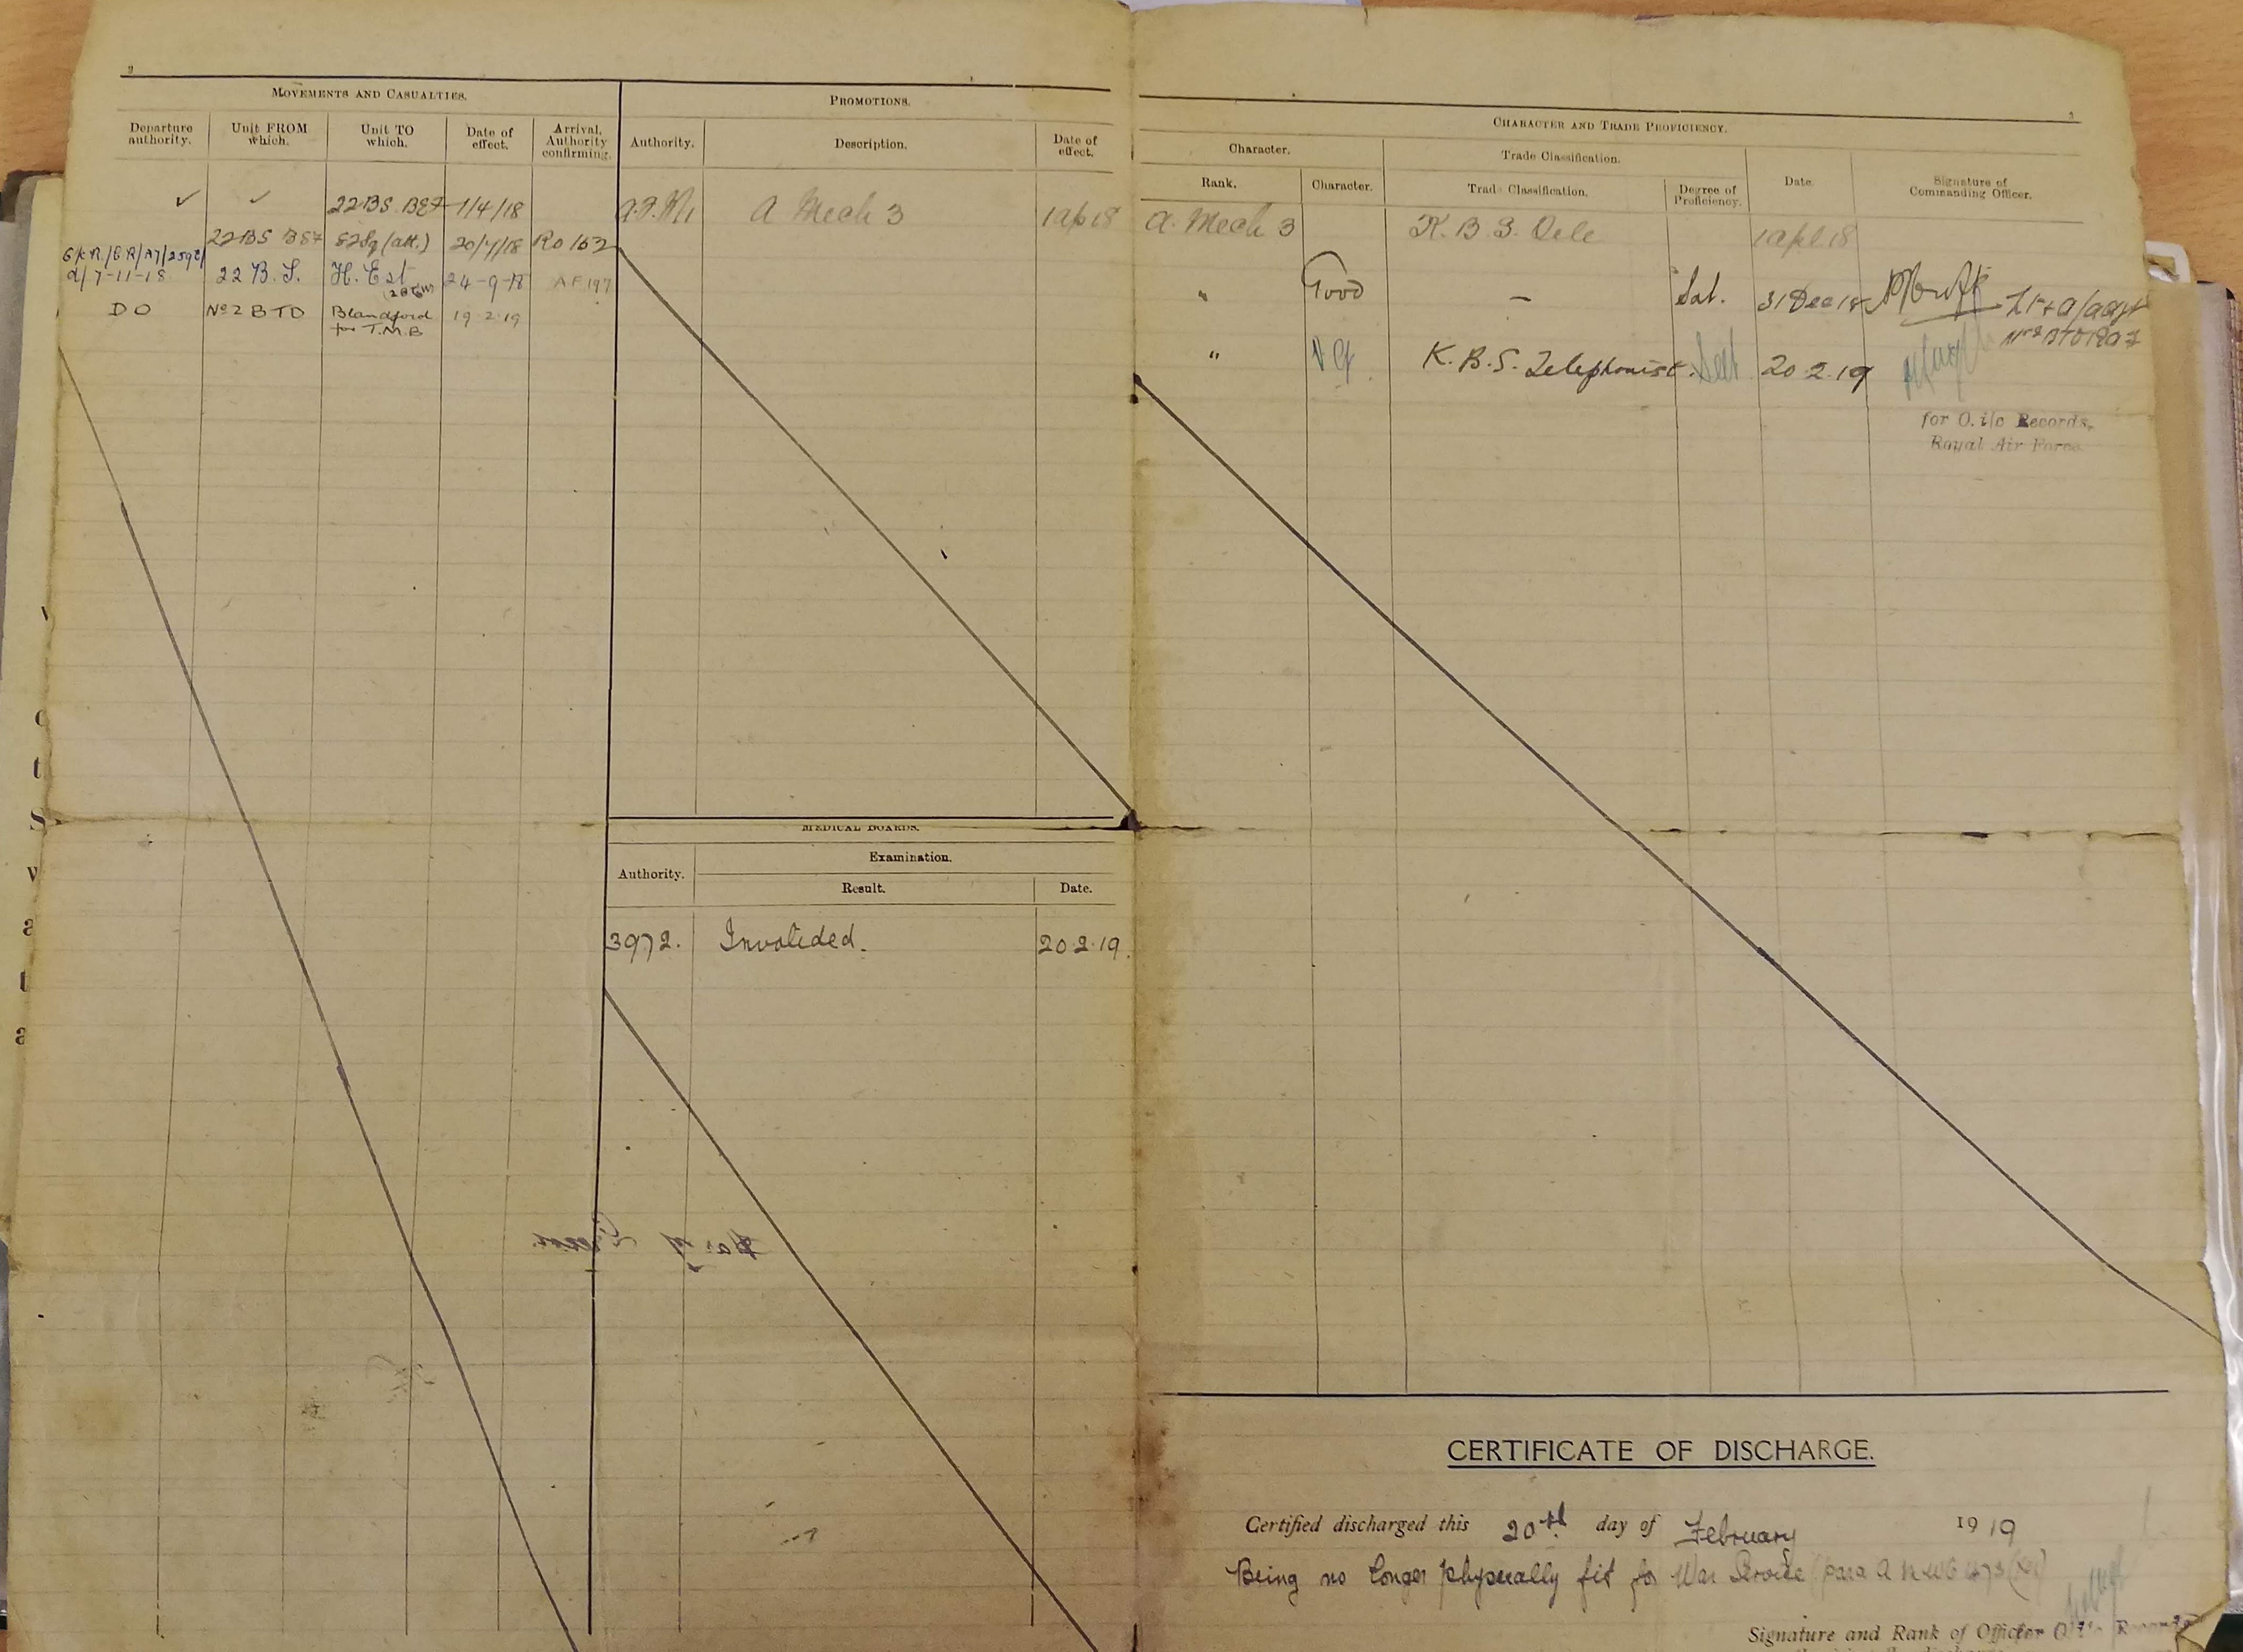 2
MOVEMENTS AND CASUALTIES.
Departure authority. Unit FROM which. Unit TO which. Date of effect. Arrival. Authority confirming.
✓ ✓ 22 BS. BEF 1/4/18
22 BS BEF 82 Sq (att.) 20/7/18 RO 163
d/7-11-18 22 B.S. H. Est 24-9-18 AF 197
DO No 2 BTD Blandford 19.2.19
for T.M.B
PROMOTIONS.
Authority. Description. Date of effect.
A Mech 3 1 ap 18
MEDICAL BOARDS.
Authority. Examination.
Result. Date.
3972. Invalided. 20.2.19.
CHARACTER AND TRADE PROFICIENCY.
Character. Trade Classification. Date. Signature of Commanding Officer.
Rank. Character. Trade Classification. Degree of Proficiency.
A. Mech 3 K. B. S. Tele 1 apl 18
" Good – Sat. 31 Dec 18 Lt + a/adjt
No 2 BTD RAF
" VG K.B.S. Telephonist. Sat 20.2.19
for O. i/c Records,
Royal Air Force.
CERTIFICATE OF DISCHARGE.
Certified discharged this 20th day of February 1919
Being no longer physically fit for War Service para
Signature and Rank of Officer for O i/c Records